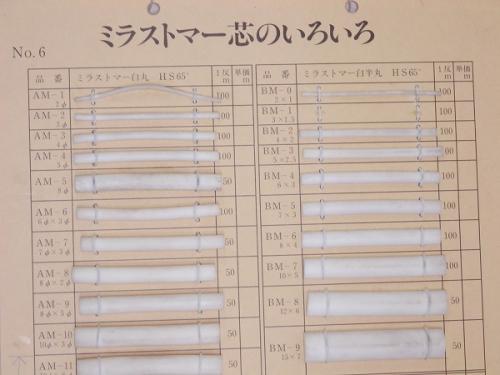 ミラストマー芯のいろいろ
No.6
品 番 ミラストマー白丸 HS65° 1反m 単価m
AM-1 2φ 100
AM-2 3φ 100
AM-3 4φ 100
AM-4 5φ 100
AM-5 8φ 50
AM-6 6φ×3φ 100
AM-7 7φ×3φ 50
AM-8 8φ×2φ 50
AM-9 8φ×5φ 50
AM-10 10φ×3φ 50
AM-11
品 番 ミラストマー白半丸 HS65° 1反m 単価m
BM-0 2×1 100
BM-1 3×1.5 100
BM-2 4×2 100
BM-3 5×2.5 100
BM-4 6×3 100
BM-5 7×3 100
BM-6 8×4 100
BM-7 10×5 100
BM-8 12×6 50
BM-9 15×7 50